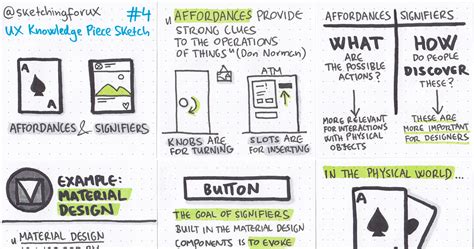 @sketchingforux
#4
UX Knowledge Piece Sketch
A
A
AFFORDANCES & SIGNIFIERS
"AFFORDANCES PROVIDE
STRONG CLUES
TO THE OPERATIONS
OF THINGS" (Don Norman)
ATM
KNOBS ARE
FOR TURNING
SLOTS ARE
FOR INSERTING
AFFORDANCES
WHAT
ARE
THE POSSIBLE
ACTIONS?
MORE RELEVANT
FOR INTERACTIONS
WITH PHYSICAL
OBJECTS
SIGNIFIERS
HOW
DO PEOPLE
DISCOVER
THESE?
THESE ARE
MORE IMPORTANT
FOR DESIGNERS
EXAMPLE:
MATERIAL
DESIGN
"MATERIAL DESIGN
BUTTON
THE GOAL OF SIGNIFIERS
BUILT IN THE MATERIAL DESIGN
COMPONENTS IS TO EVOKE
IN THE PHYSICAL WORLD...
A